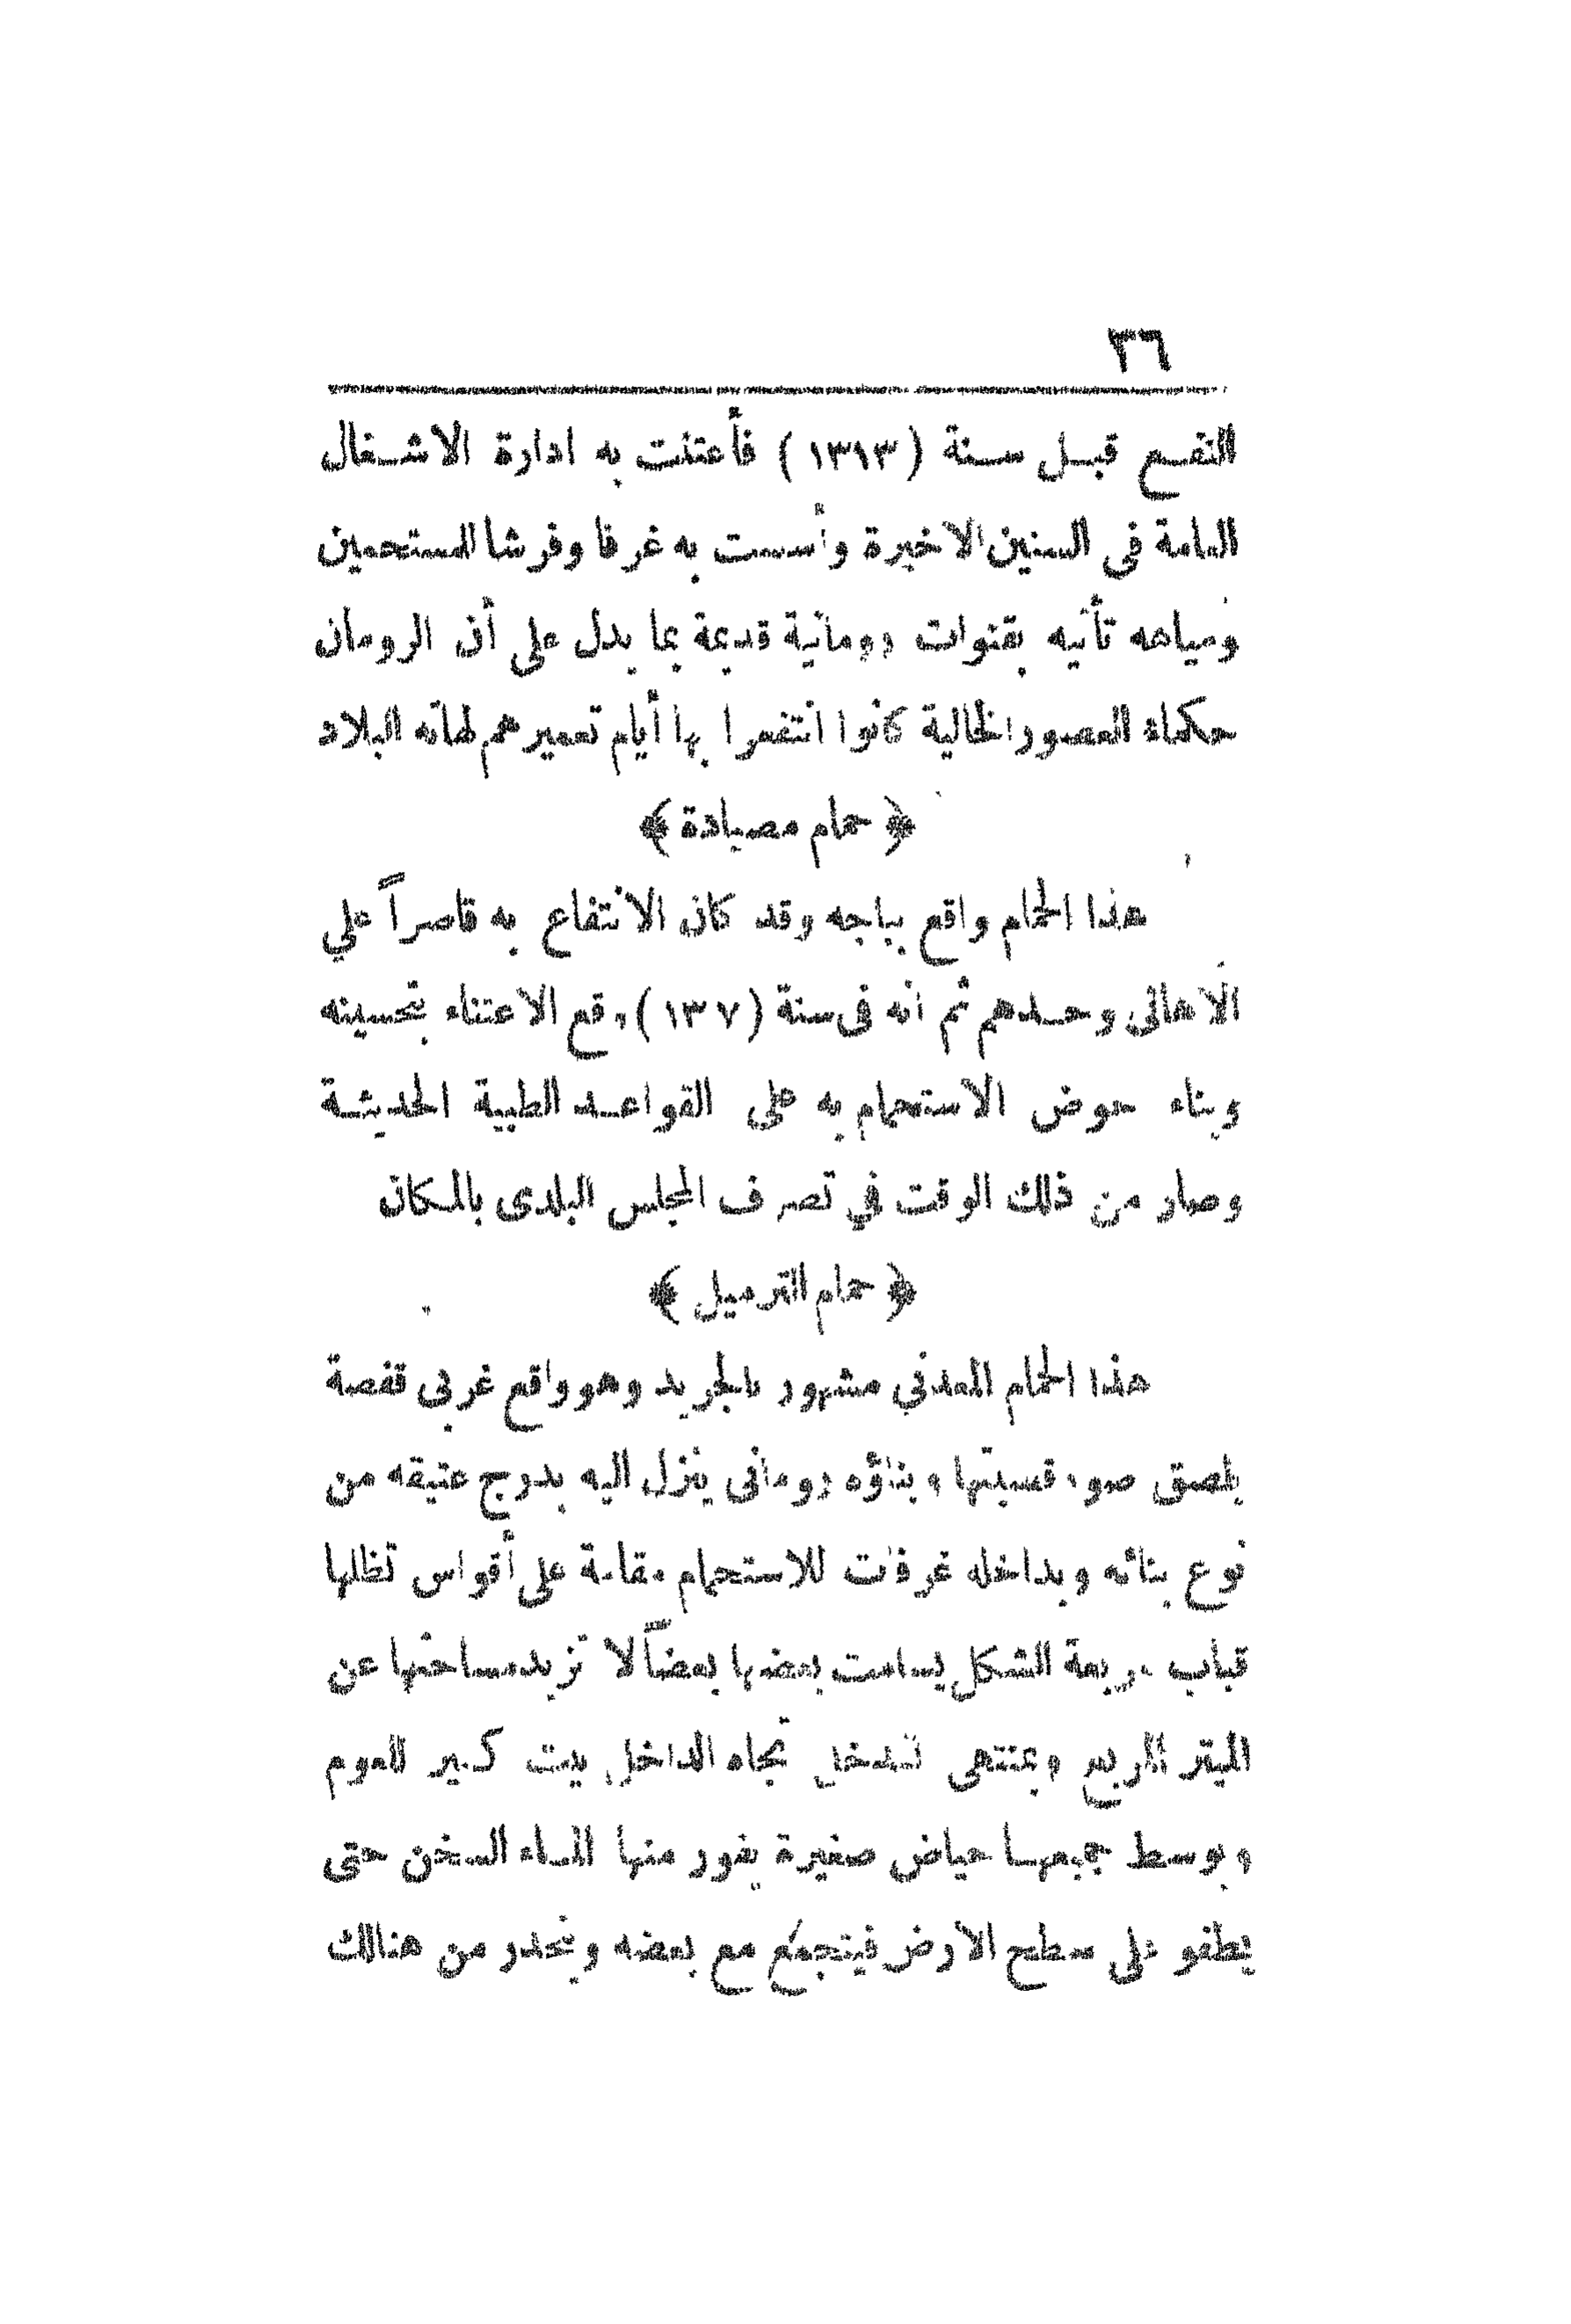 ٣٦
النفع قبل سنة (١٣١٣) فأعتنت به ادارة الاشغال
العامة في السنين الاخيرة وأسست به غرفا وفرشا للمستحمين
ومياهه تأتيه بقنوات رومانية قديمة بما يدل على أن الرومان
حكماء العصور الخالية كانوا انتفعوا بها أيام تعميرهم لهاته البلاد
﴿ حمام مصيادة ﴾
هذا الحمام واقع بباجه وقد كان الانتفاع به قاصراً علي
الاهالي وحدهم ثم انه في سنة (١٣٧) وقع الاعتناء بتحسينه
وبناء حوض الاستحمام به على القواعد الطبية الحديثة
وصار من ذلك الوقت في تصرف المجلس البلدى بالمكان
﴿ حمام الترميل ﴾
هذا الحمام المعدني مشهور بالجريد وهو واقع غربى قفصة
بلصق سور قصبتها وبناؤه رومانى ينزل اليه بدرج عتيقه من
نوع بنائه وبداخله غرفات للاستحمام مقامة على أقواس تظلها
قباب مربعة الشكل يسامت بعضها بعضاً لا تزيد مساحتها عن
الميتر المربع وبمنتهى المدخل تجاه الداخل بيت كبير للعوم
وبوسط جميعها حياض صغيرة يفور منها الماء السخن حتى
يطفو على سطح الارض فيتجمع مع بعضه وينحدر من هنالك